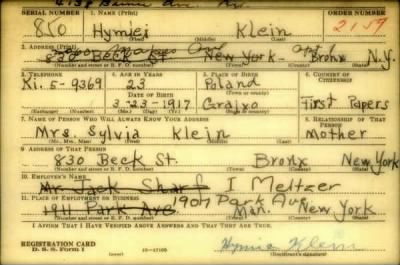 SERIAL NUMBER 1. NAME (Print) ORDER NUMBER
850 Hymie Klein 2159
(First) (Middle) (Last)
2. ADDRESS (Print)
830 Beck St New York Bronx N.Y.
(Number and street or R. F. D. number) (Town) (County) (State)
3. TELEPHONE 4. AGE IN YEARS 5. PLACE OF BIRTH 6. COUNTRY OF CITIZENSHIP
Ki. 5-9369 23 Poland
DATE OF BIRTH (Town or county)
3-23-1917 Grajxo First Papers
(Exchange) (Number) (Mo.) (Day) (Yr.) (State or country)
7. NAME OF PERSON WHO WILL ALWAYS KNOW YOUR ADDRESS 8. RELATIONSHIP OF THAT PERSON
Mrs. Sylvia Klein Mother
(Mr., Mrs., Miss) (First) (Middle) (Last)
9. ADDRESS OF THAT PERSON
830 Beck St. Bronx New York
(Number and street or R. F. D. number) (Town) (County) (State)
10. EMPLOYER'S NAME
Mr. Jack Sharf I Meltzer
11. PLACE OF EMPLOYMENT OR BUSINESS
1911 Park Ave 1907 Park Av Man. New York
(Number and street or R. F. D. number) (Town) (County) (State)
I AFFIRM THAT I HAVE VERIFIED ABOVE ANSWERS AND THAT THEY ARE TRUE.
REGISTRATION CARD
D. S. S. Form 1 (over) 16—17105 Hymie Klein
(Registrant's signature)